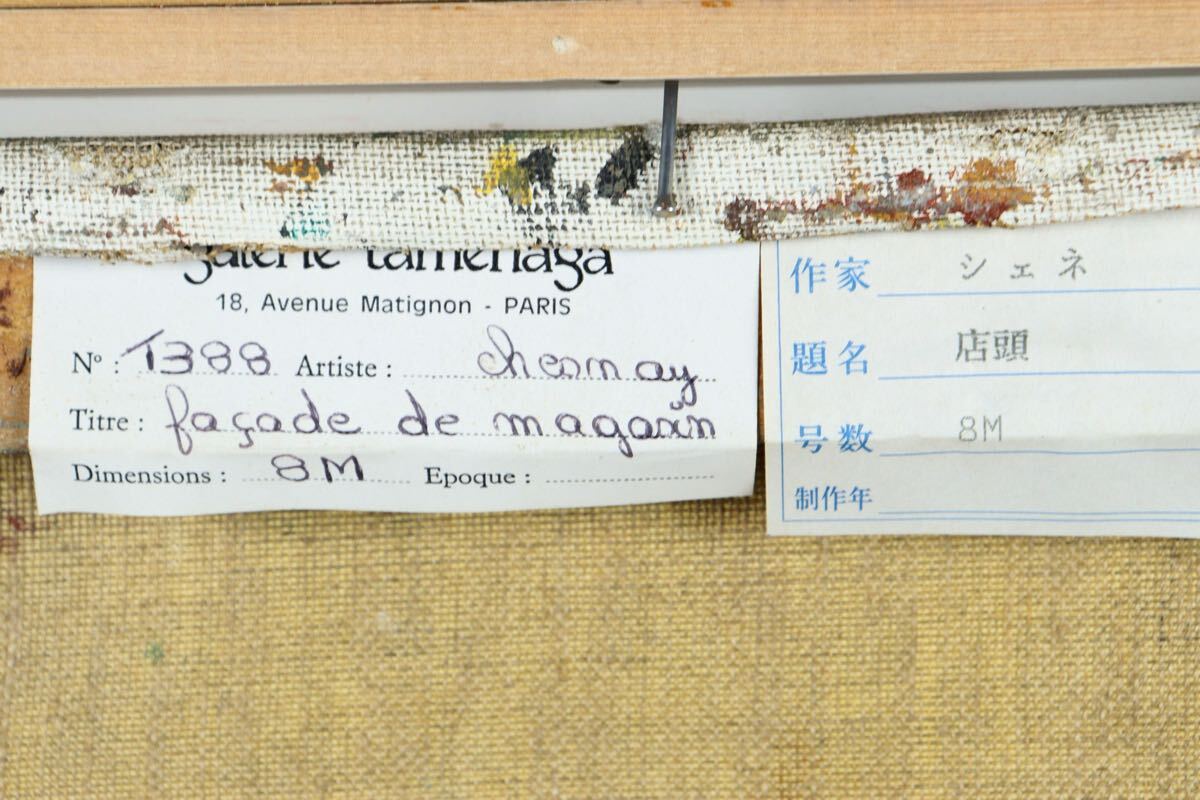 galerie tamenaga
18, Avenue Matignon - PARIS
Nº : T388 Artiste : chesnay
Titre : façade de magasin
Dimensions : 8M Epoque :
作家 シェネ
題名 店頭
号数 8M
制作年